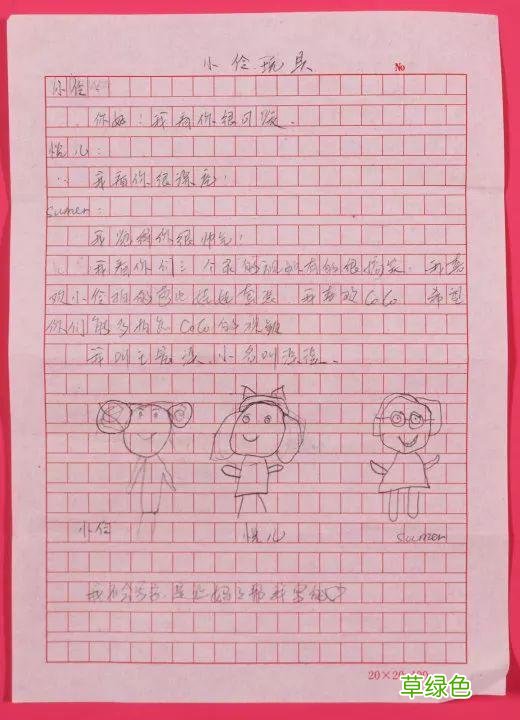 小伶玩具
No
小伶
你好！我看你很可爱。
悦儿：
我看你很漂亮！
sumen：
我觉得你很帅气！
我看你们三个录的视频有的很搞笑，我喜
欢小伶拍的芭比娃娃套装 我喜欢CoCo 希望
你们能多拍点CoCo的视频
我叫王 小名叫
小伶 悦儿 sumen
我不会写字，是让妈妈帮我写的
20×20
草绿色